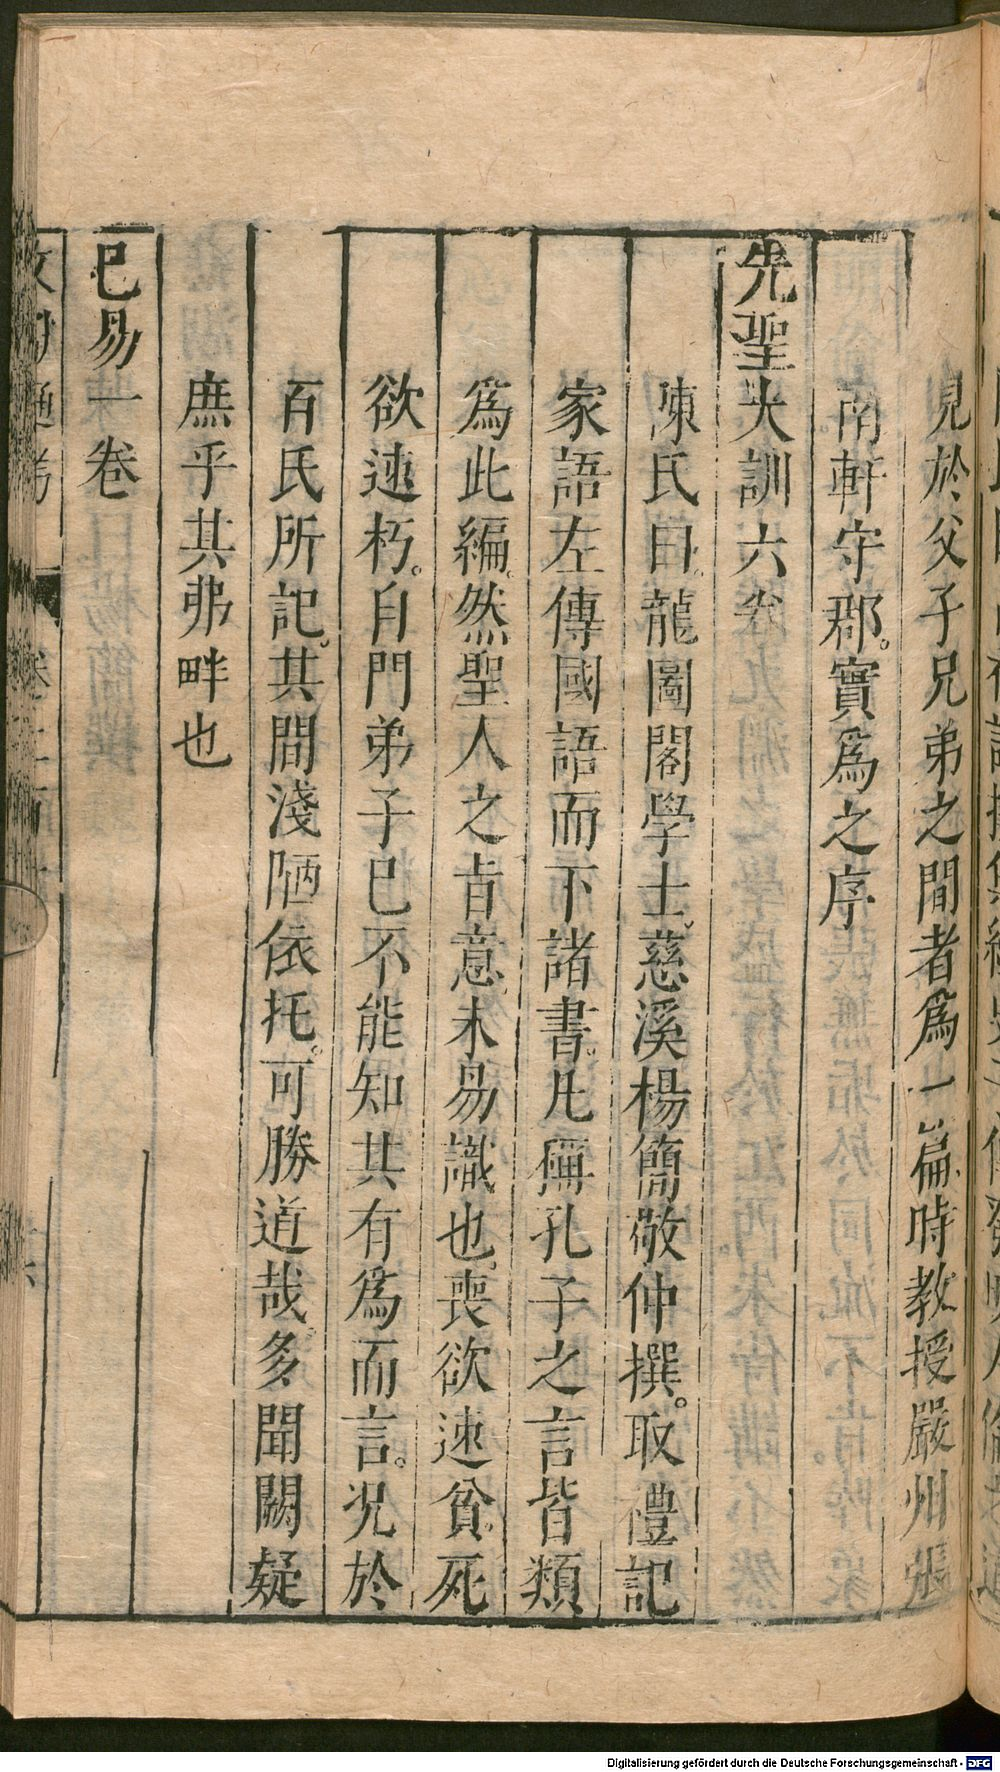 見於父子兄弟之間者爲一篇時教授嚴州張
南軒守郡。實爲之序
先聖大訓六卷
陳氏曰。龍圖閣學士。慈溪楊簡敬仲撰。取禮記
家語左傳國語而下諸書。凡稱孔子之言皆類
爲此編。然聖人之旨意未易識也。喪欲速貧。死
欲速朽。自門弟子已不能知其有爲而言。况於
百氏所記。其間淺陋依托。可勝道哉。多聞闕疑
庶乎其弗畔也
已易一卷
Digitalisierung gefördert durch die Deutsche Forschungsgemeinschaft - DFG